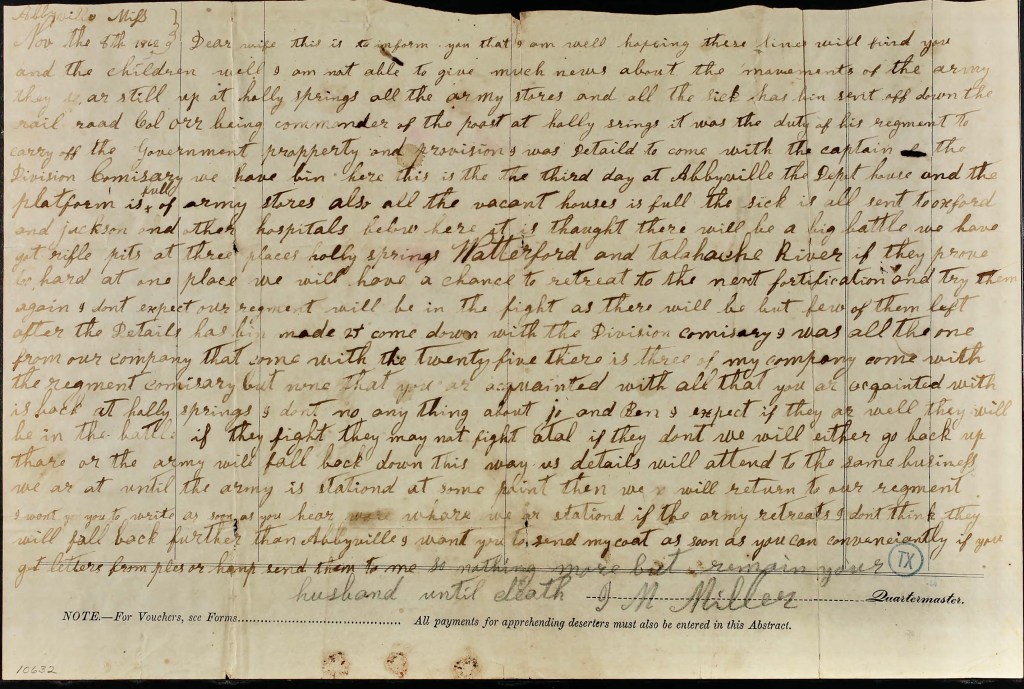 Abbyville Miss }
Nov the 6th 1862 } Dear wife this is to inform you that I am well hopping these lines will find you
and the children well I am not able to give much news about the movements of the army
they ar still up at holly springs all the army stores and all the sick has bin sent off down the
rail road Col Orr being commander of the poast at holly srings it was the duty of his regment to
carry off the Government propperty and provision I was Detaild to come with the captain the
Division Comisary we have bin here this is the the third day at Abbyville the Depot house and the
platform is full of army stores also all the vacant houses is full the sick is all sent to oxford
and jackson and other hospitals below here it is thought there will be a big battle we have
got rifle pits at three places holly springs Watterford and talahache River if they prove
to hard at one place we will have a chance to retreat to the next fortification and try them
again I dont expect our regment will be in the fight as there will be but few of them left
after the Details has bin made 25 come down with the Division comisary I was all the one
from our company that come with the twenty five there is three of my company come with
the regment comisary but none that you ar acquainted with all that you ar acqainted with
is back at holly springs I dont no any thing about jo and Ben I expect if they ar well they will
be in the battle if they fight they may not fight atal if they dont we will either go back up
thare or the army will fall back down this way us details will attend to the same business
we ar at until the army is stationd at some point then we will return to our regment
I wont you to write as soon as you hear whare we ar stationd if the army retreats I dont think they
will fall back further than Abbyville I want you to send my coat as soon as you can conveneiantly if you
got letters from ples or hamp send them to me so nothing more but remain your (TX)
husband until death J M Miller Quartermaster.
NOTE.—For Vouchers, see Forms All payments for apprehending deserters must also be entered in this Abstract.
10632